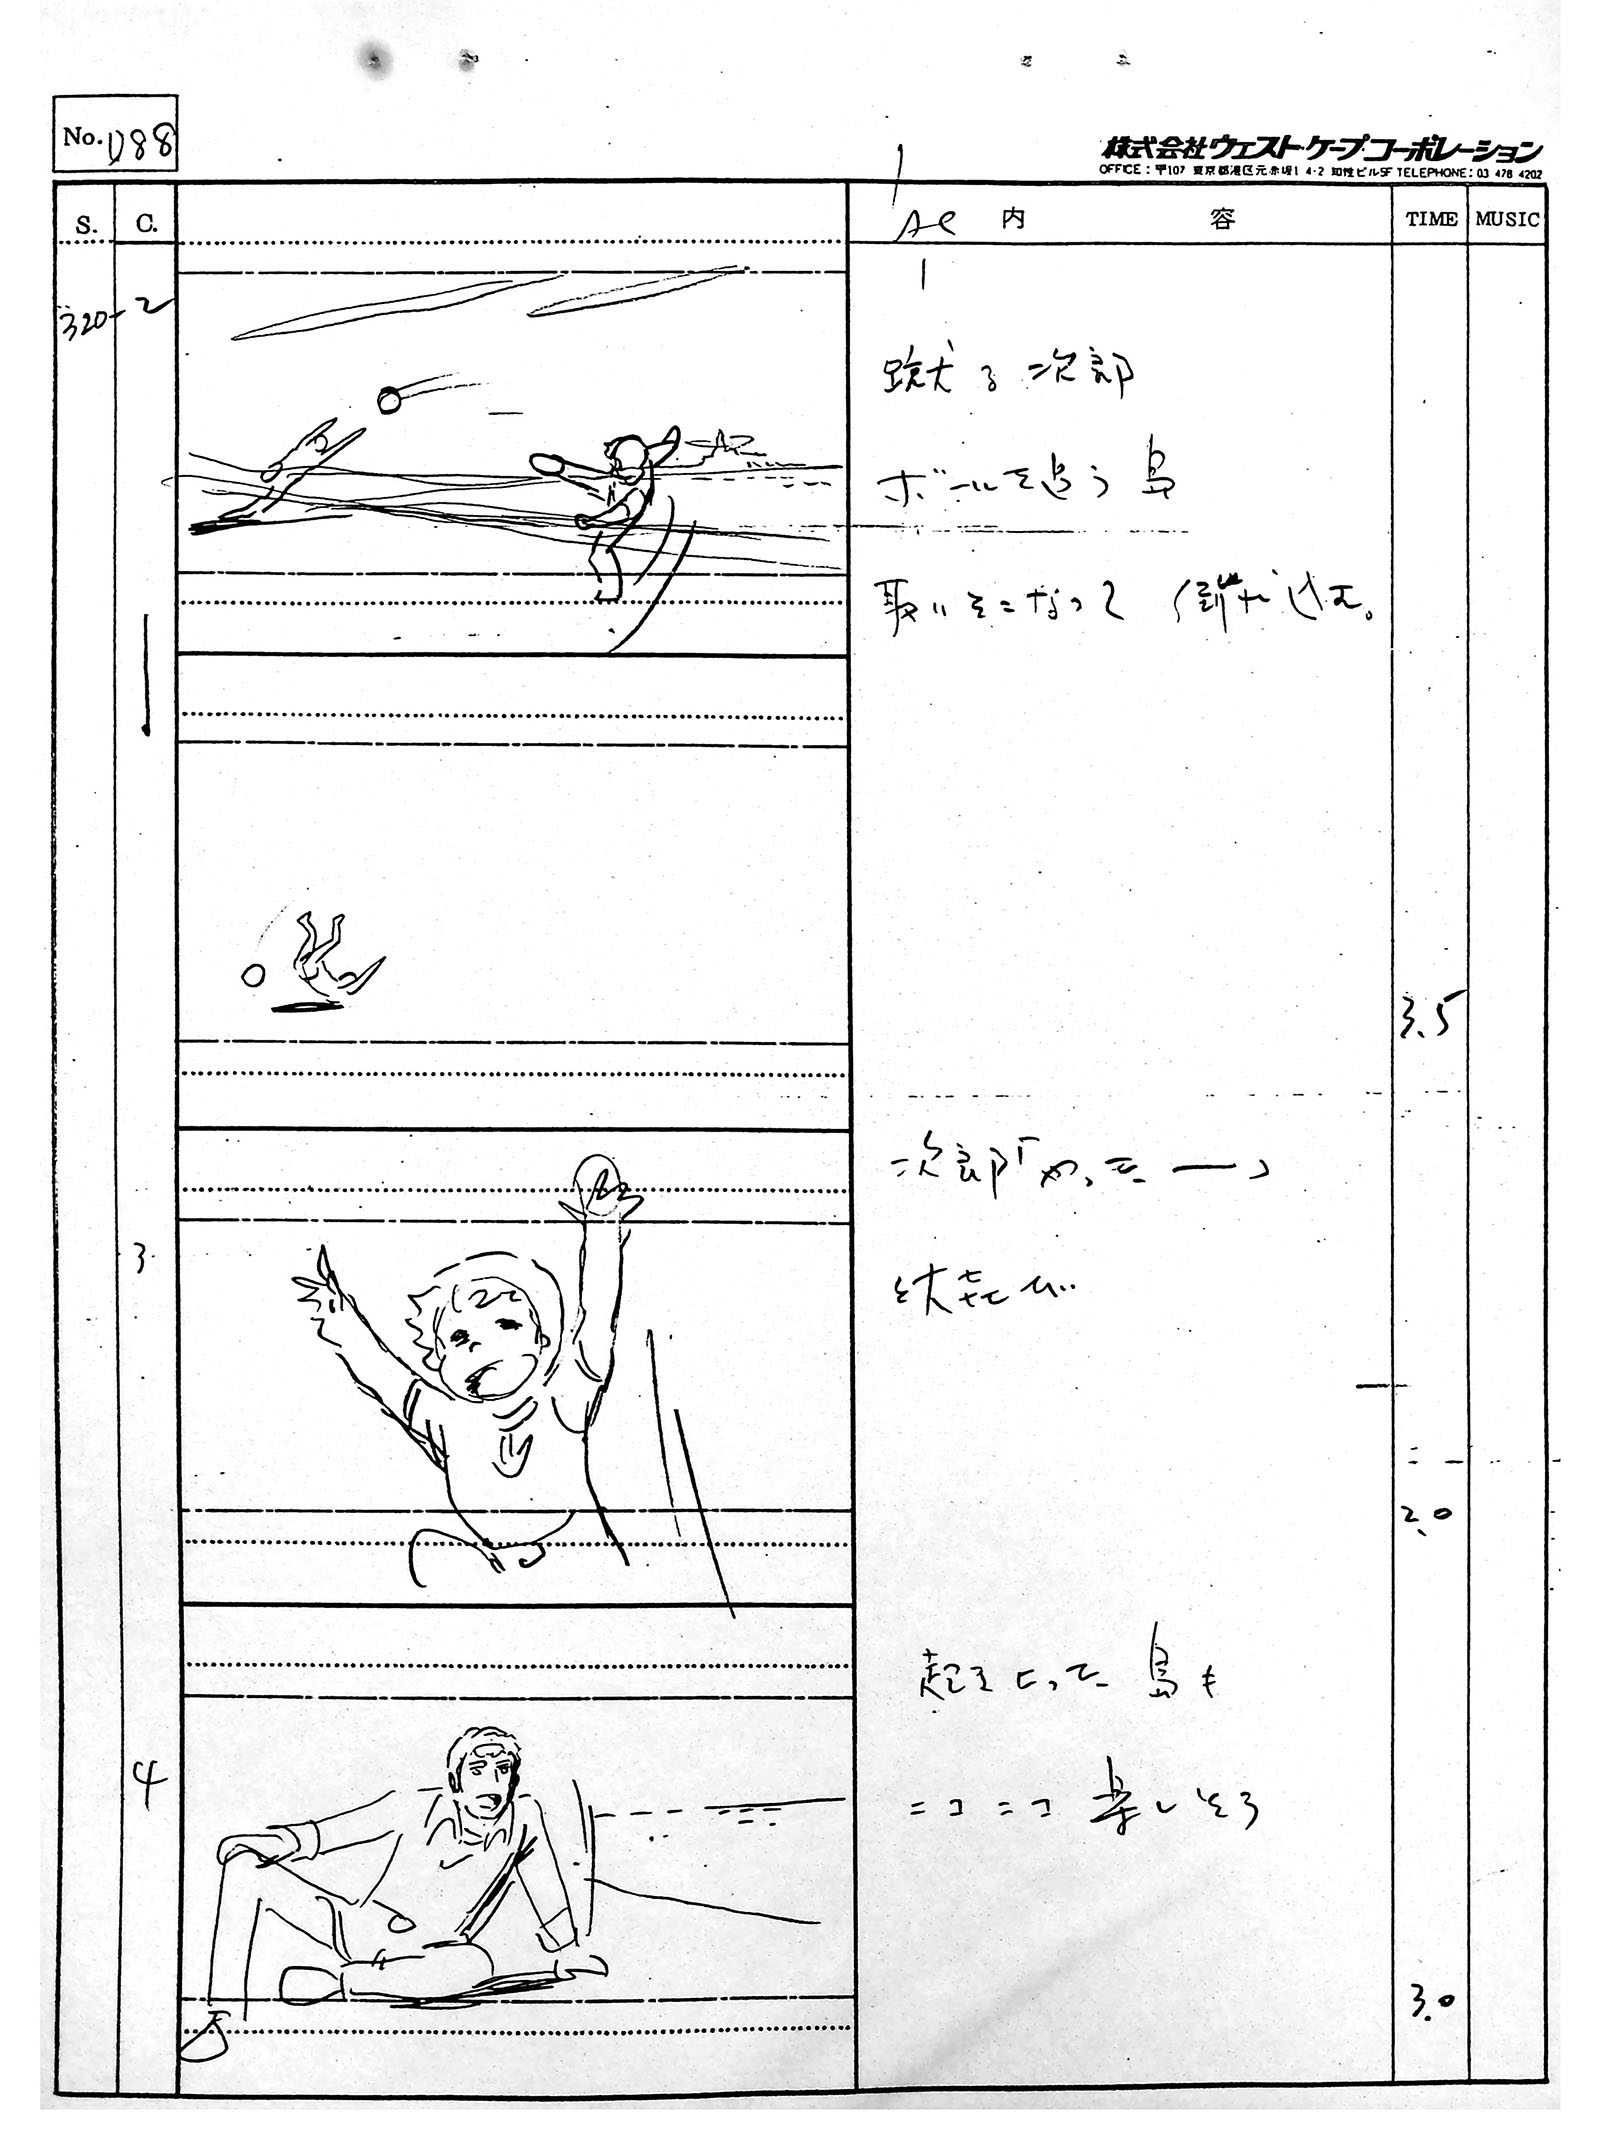 No. D88
株式会社ウェスト・ケープ・コーポレーション
OFFICE：〒107 東京都港区元赤坂1 4-2 知性ビル5F TELEPHONE：03 478 4202
S. C. 内容 TIME MUSIC
320 2
蹴る次郎
ボールを追う島
取りそこなって倒れ込む。
3.5
次郎「やったーっ
3
大喜び
2.0
起き上った島も
4
ニコニコ楽しそう
3.0